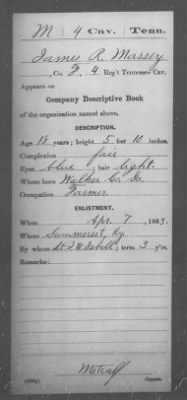 M | 4 Cav. Tenn.
James R. Massey
, Co. F, 4 Reg't Tennessee Cav.
Appears on
Company Descriptive Book
of the organization named above.
DESCRIPTION.
Age 18 years; height 5 feet 10 inches.
Complexion fair
Eyes blue; hair light.
Where born Walker Co. Ga.
Occupation Farmer
ENLISTMENT.
When Apr. 7, 1863.
Where Sommerset, Ky.
By whom Lt. J. W. Isbell; term 3 y'rs.
Remarks:
Metcalf
Copyist.